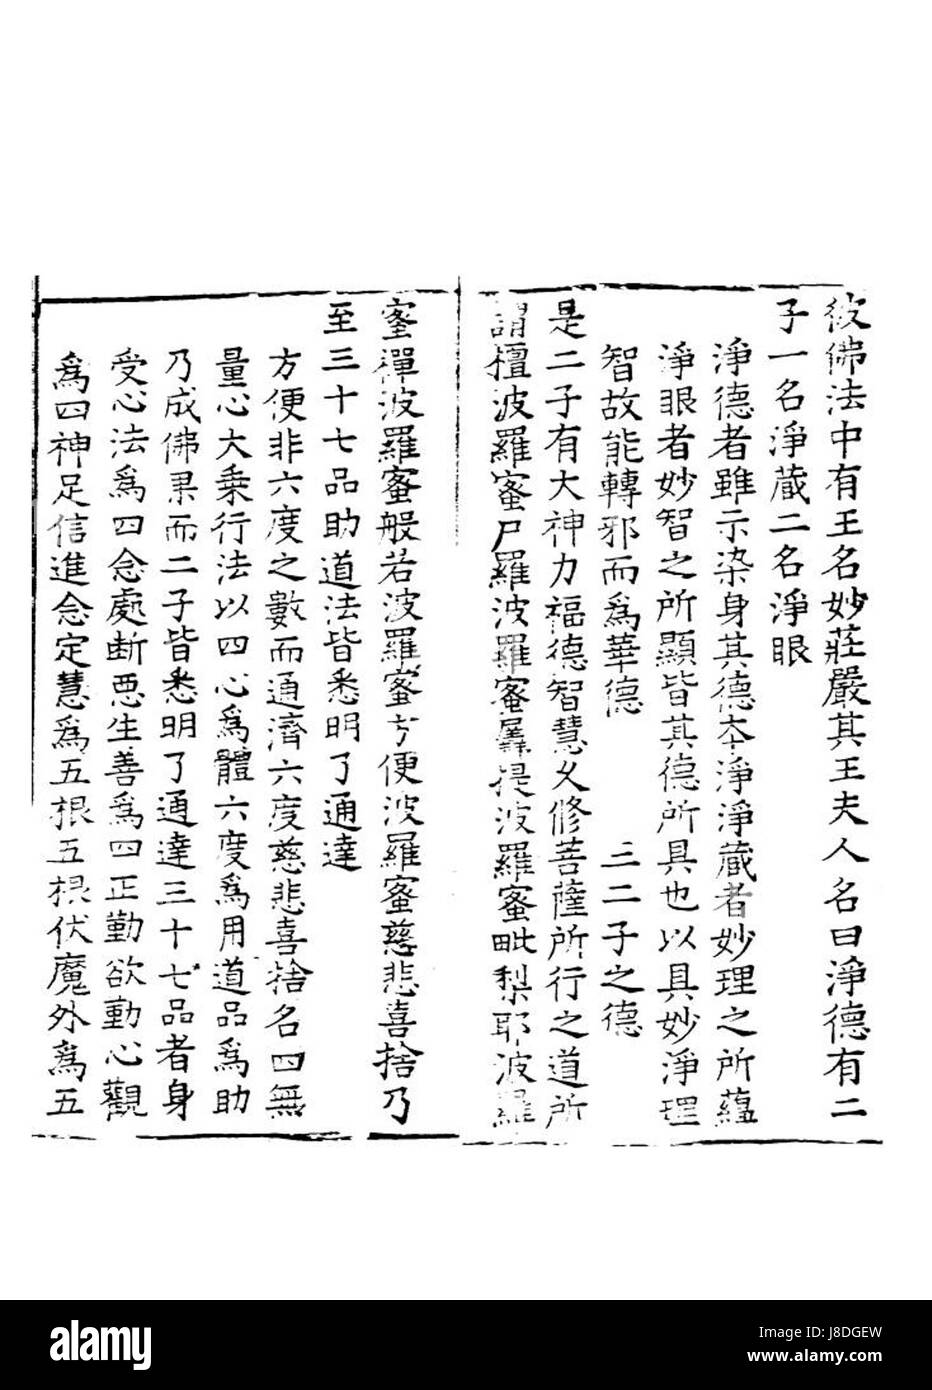 彼佛法中有王名妙莊嚴其王夫人名曰淨德有二
子一名淨藏二名淨眼
淨德者雖示染身其德本淨淨藏者妙理之所蘊
淨眼者妙智之所顯皆其德所具也以具妙淨理
智故能轉邪而爲華德 三二子之德
是二子有大神力福德智慧久修菩薩所行之道所
謂檀波羅蜜尸羅波羅蜜羼提波羅蜜毗梨耶波羅
蜜禪波羅蜜般若波羅蜜方便波羅蜜慈悲喜捨乃
至三十七品助道法皆悉明了通達
方便非六度之數而通濟六度慈悲喜捨名四無
量心大乘行法以四心爲體六度爲用道品爲助
乃成佛果而二子皆悉明了通達三十七品者身
受心法爲四念處斷惡生善爲四正勤欲勤心觀
爲四神足信進念定慧爲五根五根伏魔外爲五
alamy
Image ID: J8DGEW
www.alamy.com